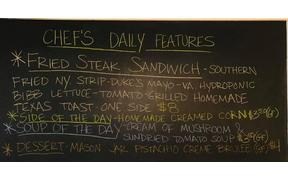 CHEF'S DAILY FEATURES
*FRIED STEAK SANDWICH - SOUTHERN
FRIED NY STRIP - DUKE'S MAYO - VA. HYDROPONIC
BIBB LETTUCE - TOMATO - GRILLED HOMEMADE
TEXAS TOAST - ONE SIDE $8
*SIDE OF THE DAY - HOMEMADE CREAMED CORN $3.50(GF)
*SOUP OF THE DAY - CREAM OF MUSHROOM &
SUNDRIED TOMATO SOUP (GF)
*DESSERT - MASON JAR PISTACHIO CREME BRULEE (GF) $4